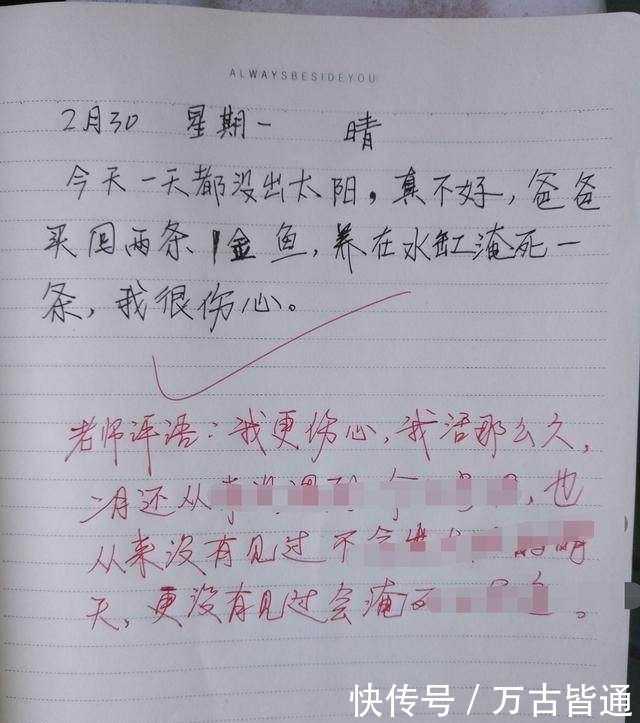 ALWAYSBESIDEYOU
2月30 星期一 晴
今天一天都没出太阳，真不好，爸爸
买回两条金鱼，养在水缸淹死一
条，我很伤心。
老师评语：我更伤心，我活那么久，
二月还从，也
从来没有见过不
天，更没有见过会淹。
快传号／万古皆通